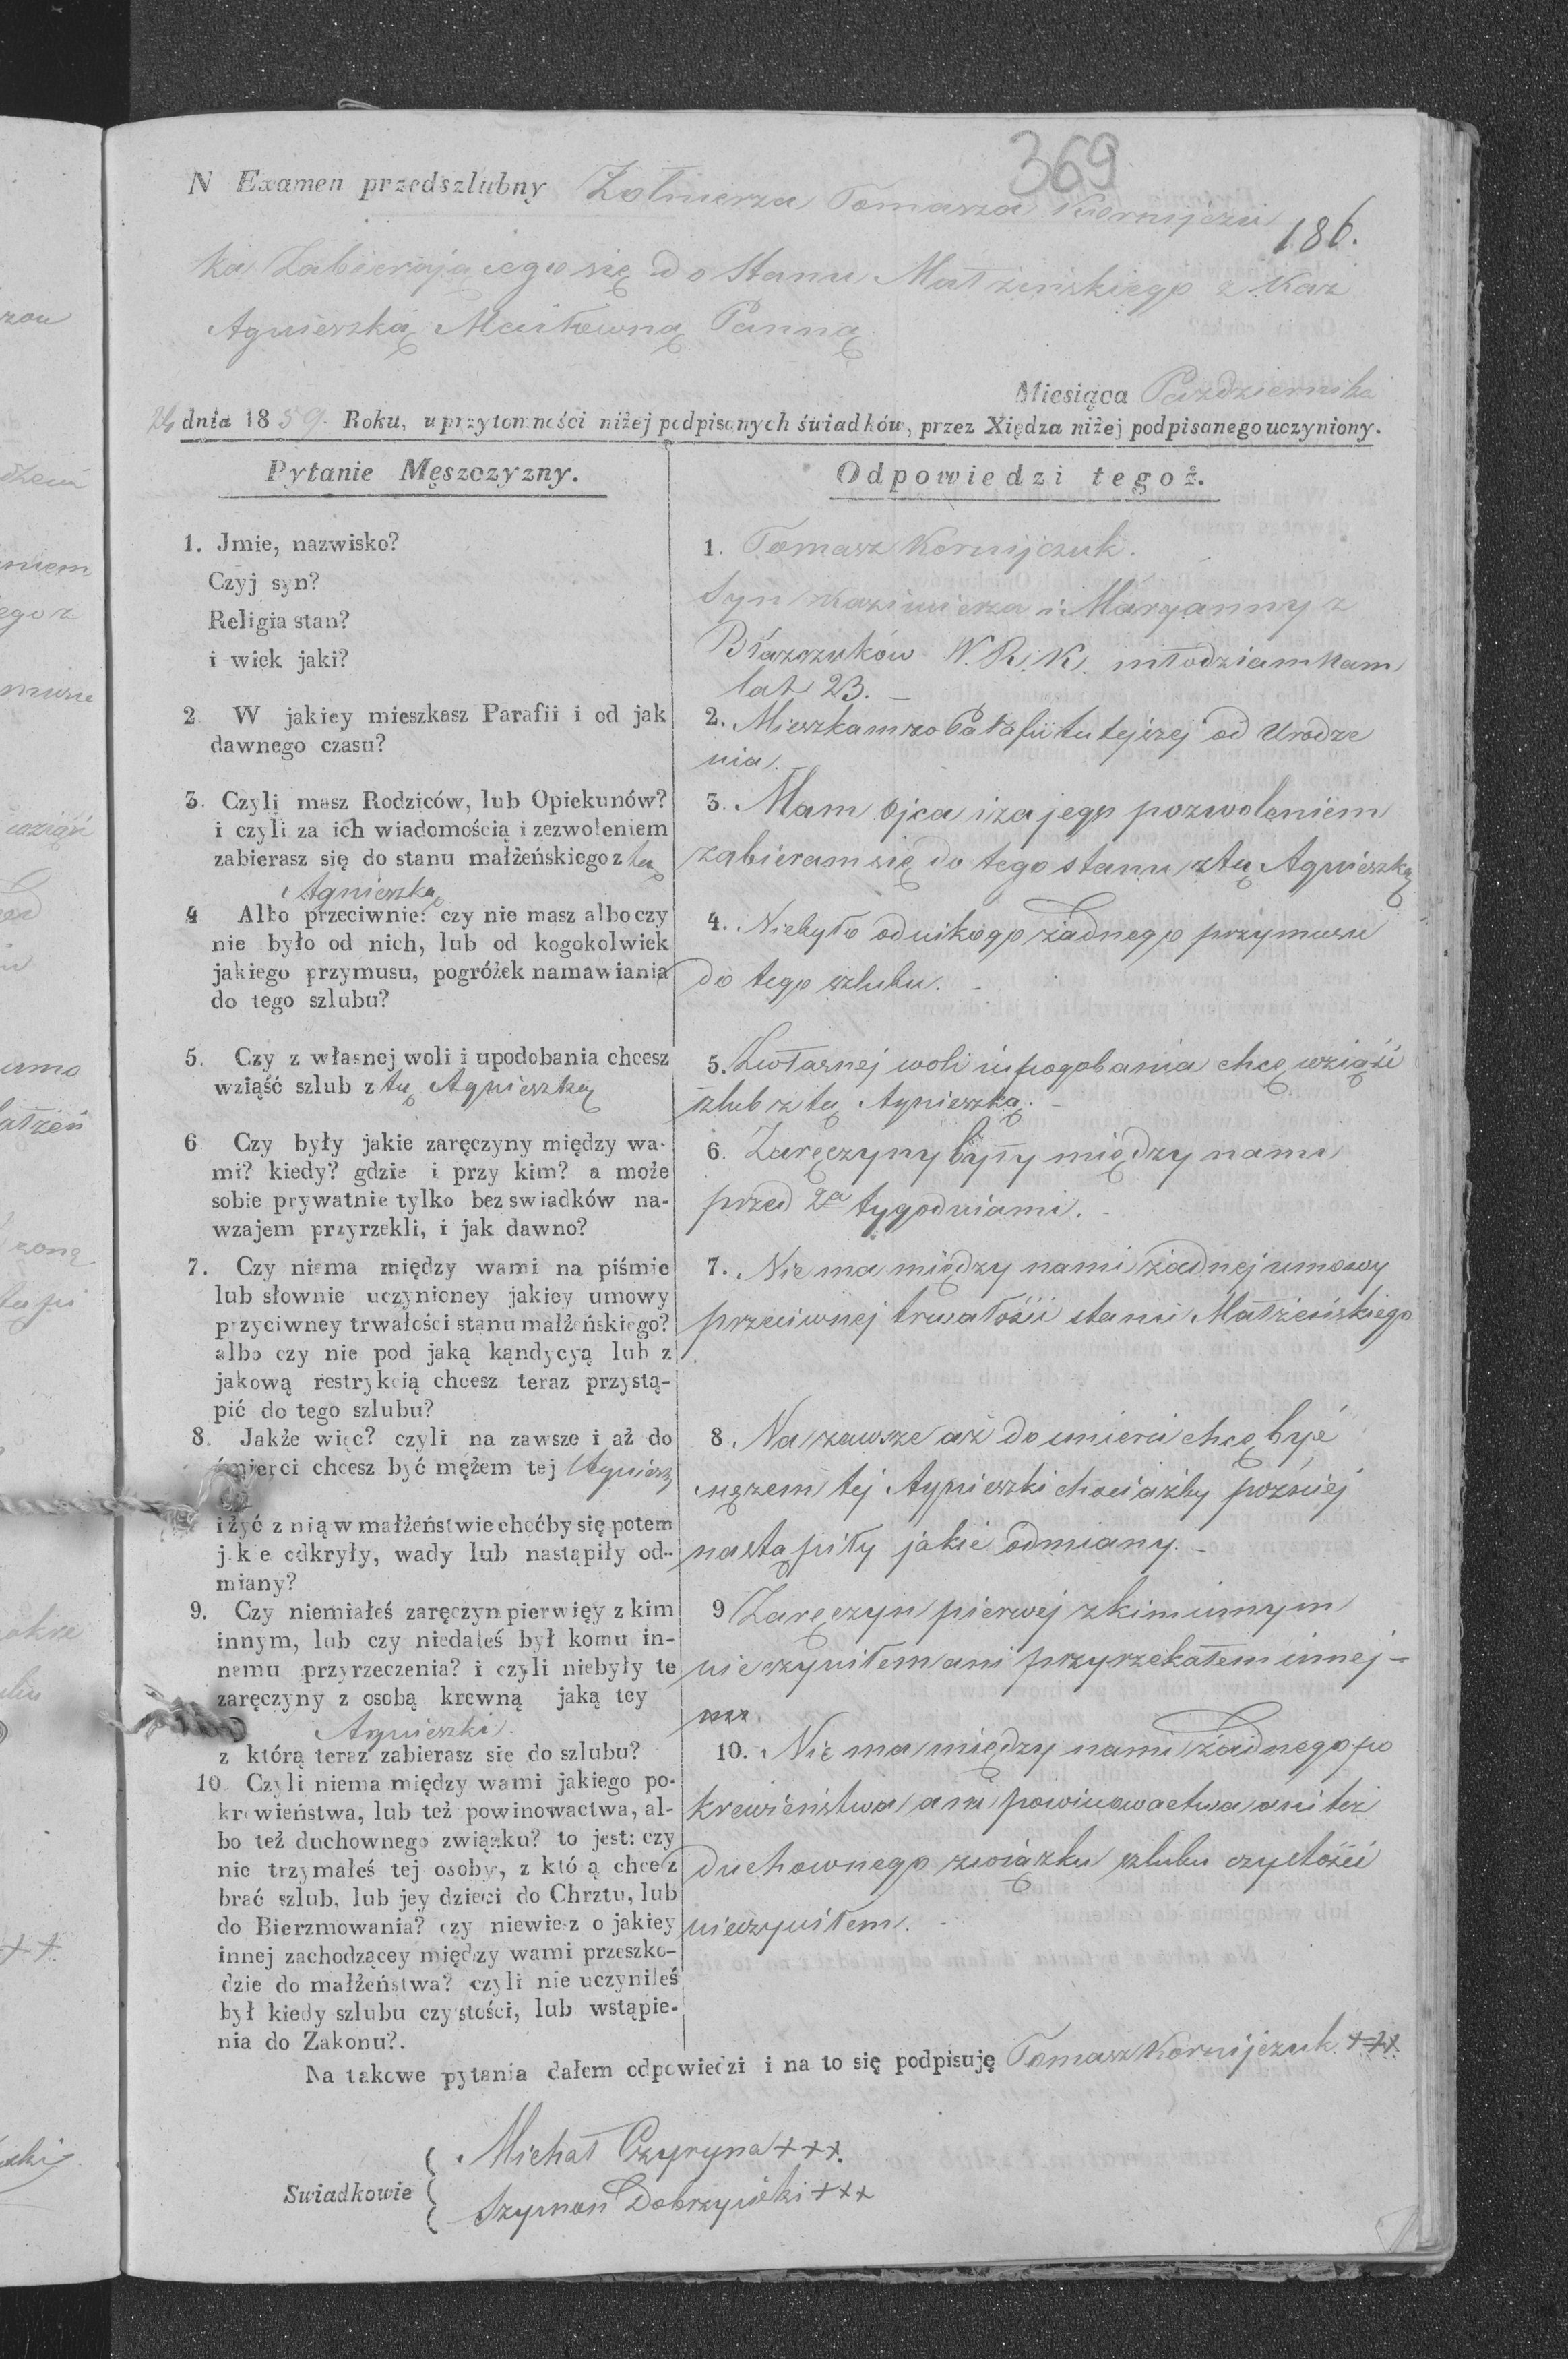 369
N Examen przedszlubny Żołnierza Tomasza Kornijczu
186.
ka Zabierającego się do Stanu Małżeńskiego z
Agnieszką Panną
Miesiąca Października
dnia 1859. Roku, w przytomności niżej podpisanych świadków, przez Xiędza niżej podpisanego uczyniony.
Pytanie Męszczyzny.
1. Jmie, nazwisko?
Czyj syn?
Religia stan?
i wiek jaki?
2 W jakiey mieszkasz Parafii i od jak
dawnego czasu?
3. Czyli masz Rodziców, lub Opiekunów?
i czyli za ich wiadomością i zezwoleniem
zabierasz się do stanu małżeńskiego z tą
Agnieszką
4 Albo przeciwnie: czy nie masz albo czy
nie było od nich, lub od kogokolwiek
jakiego przymusu, pogróżek namawiania
do tego szlubu?
5. Czy z własnej woli i upodobania chcesz
wziąść szlub z tą Agnieszką
6 Czy były jakie zaręczyny między wa-
mi? kiedy? gdzie i przy kim? a może
sobie prywatnie tylko bez swiadków na-
wzajem przyrzekli, i jak dawno?
7. Czy niema między wami na piśmie
lub słownie uczynioney jakiey umowy
przyciwney trwałości stanu małżeńskiego?
albo czy nie pod jaką kąndycyą lub z
jakową restrykcią chcesz teraz przystą-
pić do tego szlubu?
8. Jakże więc? czyli na zawsze i aż do
śmierci chcesz być mężem tej Agniesz
ki
i żyć z nią w małżeństwie choćby się potem
jakie odkryły, wady lub nastąpiły od-
miany?
9. Czy niemiałeś zaręczyn pierwięy z kim
innym, lub czy niedałeś był komu in-
nemu przyrzeczenia? i czyli niebyły te
zaręczyny z osobą krewną jaką tey
Agnieszki.
z którą teraz zabierasz się do szlubu?
10. Czyli niema między wami jakiego po-
krewieństwa, lub też powinowactwa, al-
bo też duchownego związku? to jest: czy
nie trzymałeś tej osoby, z którą chcesz
brać szlub, lub jey dzieci do Chrztu, lub
do Bierzmowania? czy niewiesz o jakiey
innej zachodzącey między wami przeszko-
dzie do małżeństwa? czyli nie uczyniłeś
był kiedy szlubu czystości, lub wstąpie-
nia do Zakonu?.
Odpowiedzi tegoż.
1. Tomasz Kornijczuk.
Syn Kazimierza i Maryanny z
Błaszczuków W. R. K. młodzian mam
lat 23. –
2. Mieszkam w Parafii tutejszej od Urodze
nia.
3. Mam ojca i za jego pozwoleniem
zabieram się do tego stanu z tą Agnieszką
4. Niebyło od nikogo żadnego przymusu
do tego szlubu. –
5. Z własnej woli i upogobania chcę wziąść
szlub z tą Agnieszką. –
6. Zaręczyny były między nami
przed 2a tygodniami. –
7. Nie ma między nami żadnej umowy
przeciwnej trwałości stanu Małżeńskiego
8. Na zawsze aż do śmierci chcę być
mężem tej Agnieszki chociażby pożniej
nastąpiły jakie odmiany. –
9 Zaręczyn pierwej z kim innym
nie czyniłem ani przyrzekałem innej –
10. Nie ma między nami żadnego po
krewieństwa ani powinowactwa ani też
duchownego związku szlubu czystości
nieczyniłem. –
Na takowe pytania dałem odpowiedzi i na to się podpisuję Tomasz Kornijczuk +++
Swiadkowie
Michał Czyryna +++.
Szymon Dobrzyński +++